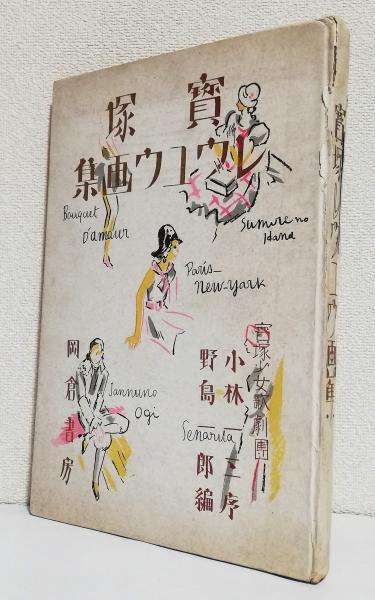 寶塚
レヴユウ画集
Sumire no
Hana
Bouquet
D'amour
Paris-
New-York
寶塚少女歌劇團
小林一三序
野島一郎編
Senarita
Jannuno
Ogi
岡倉書房
寶塚レヴユウ画集